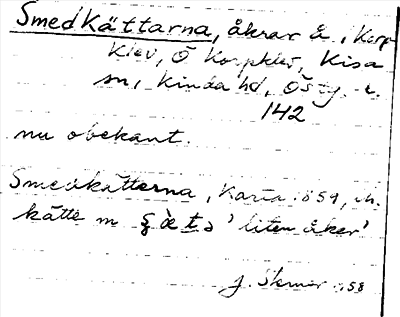 Smedkättarna, åkrar å, Korp
Klev, Ö Korpklev, Kisa
sn, Kinda hd, Östg. l.
142
nu obekant.
Smedkätterna, Karta 1859,
kätte m 'liten åker'
J. Sterner